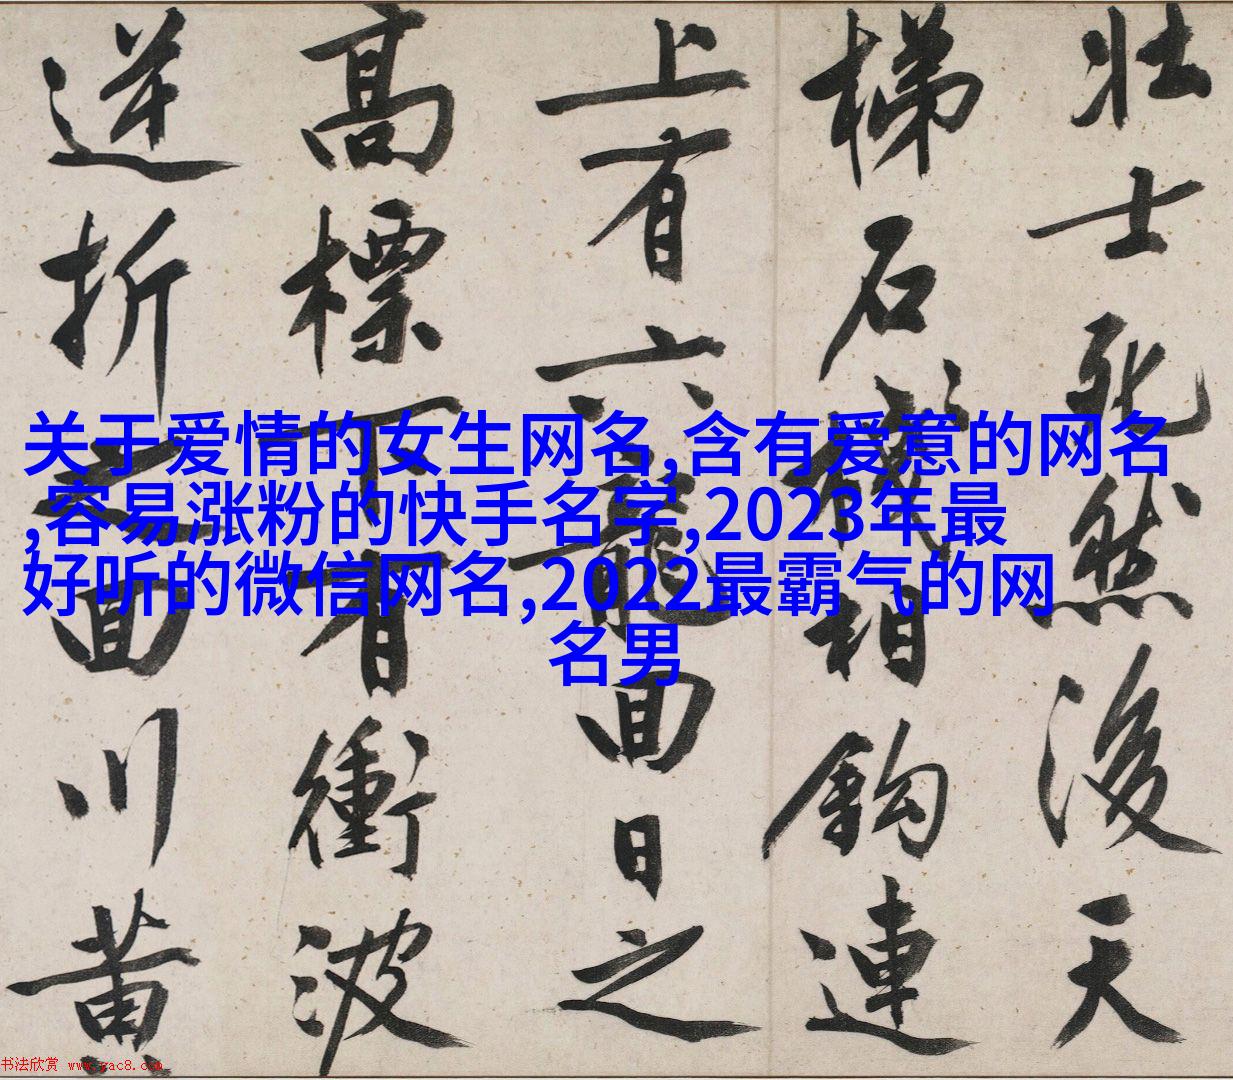 壮士死然後天
梯石棧相鉤連
上有六龍迴日之
高標下有衝波
逆折之迴川黄
关于爱情的女生网名,含有爱意的网名
,容易涨粉的快手名字,2023年最
好听的微信网名,2022最霸气的网
名男
书法欣赏 www.yac8.com